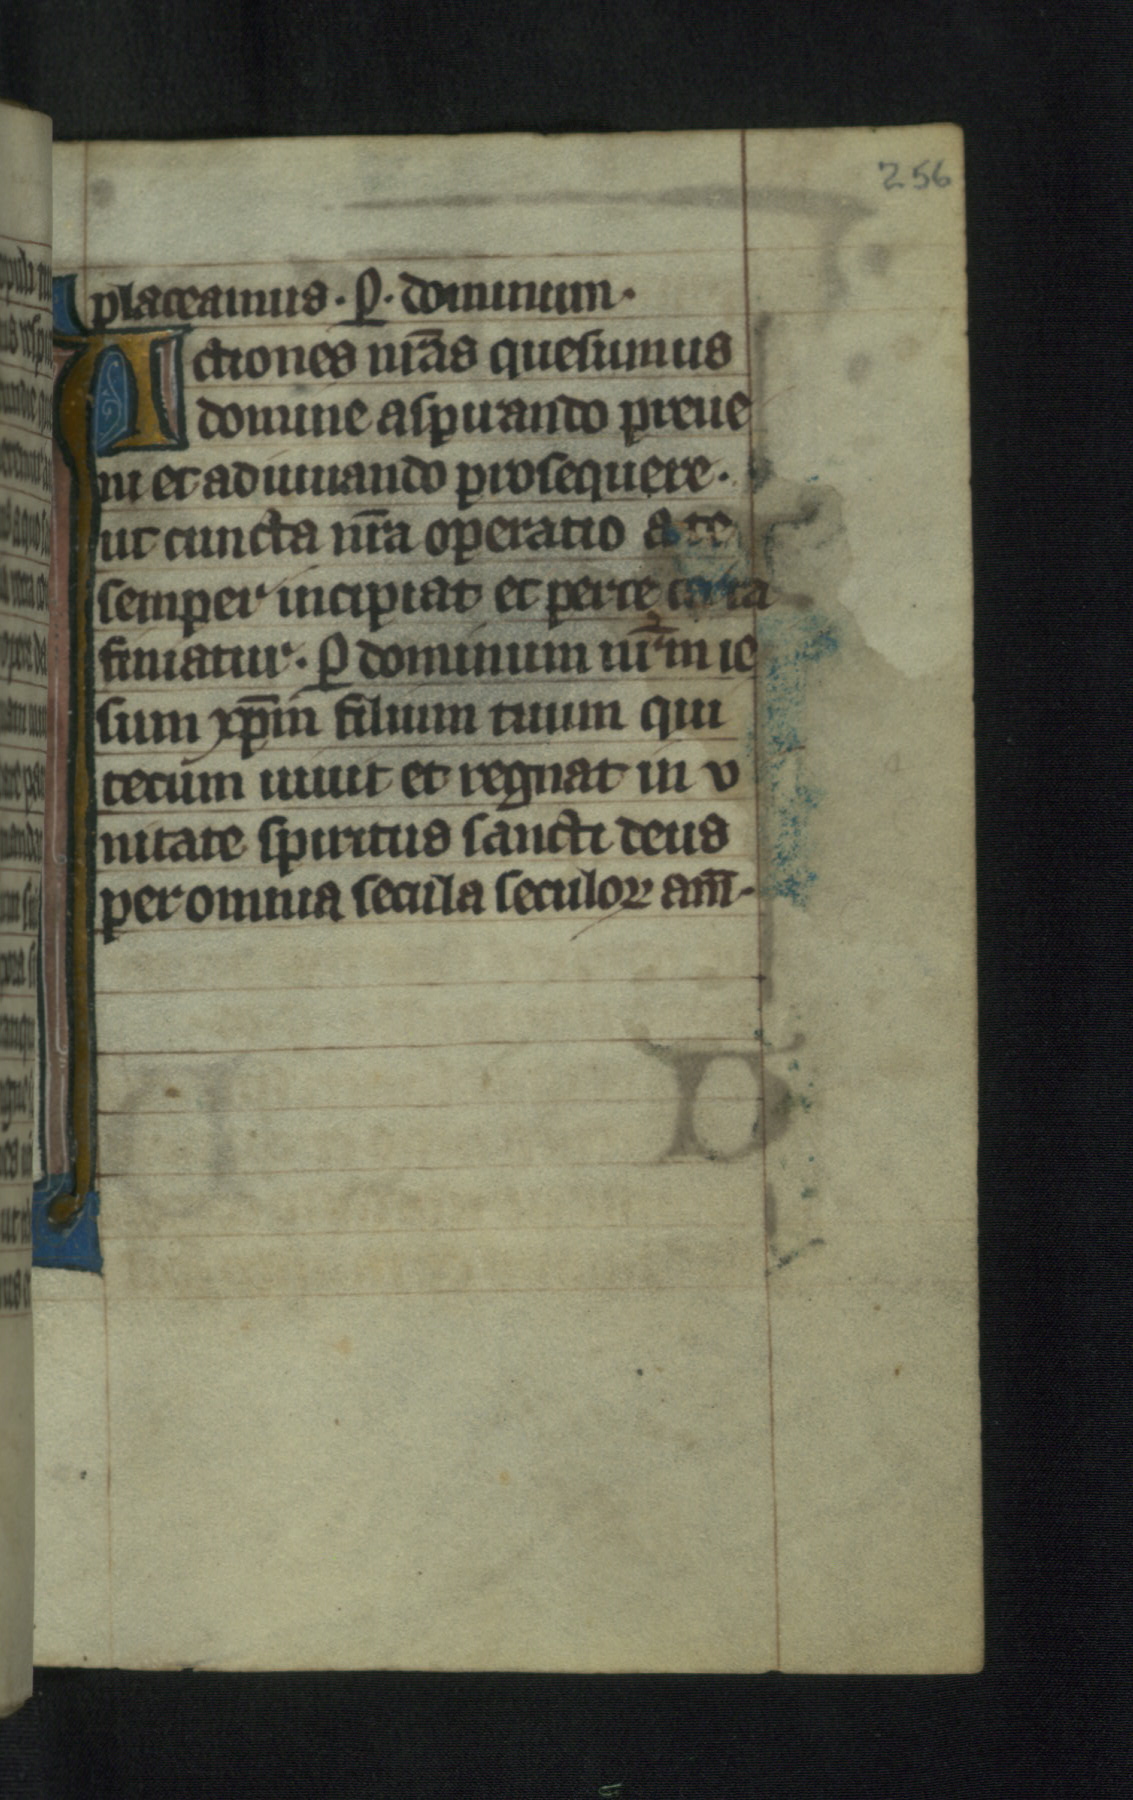 256
placeamus. P. dominum.
Actiones nr̄as quesumus
domine aspirando preue
ni et adiuuando prosequere.
ut cuncta nr̄a operatio a te
semper incipiat et per te cepta
finiatur. P dominum nr̄m ie
sum xp̄m filium tuum qui
tecum uiuit et regnat in v
nitate spiritus sancti deus
per omnia secula seculoꝝ am̄.